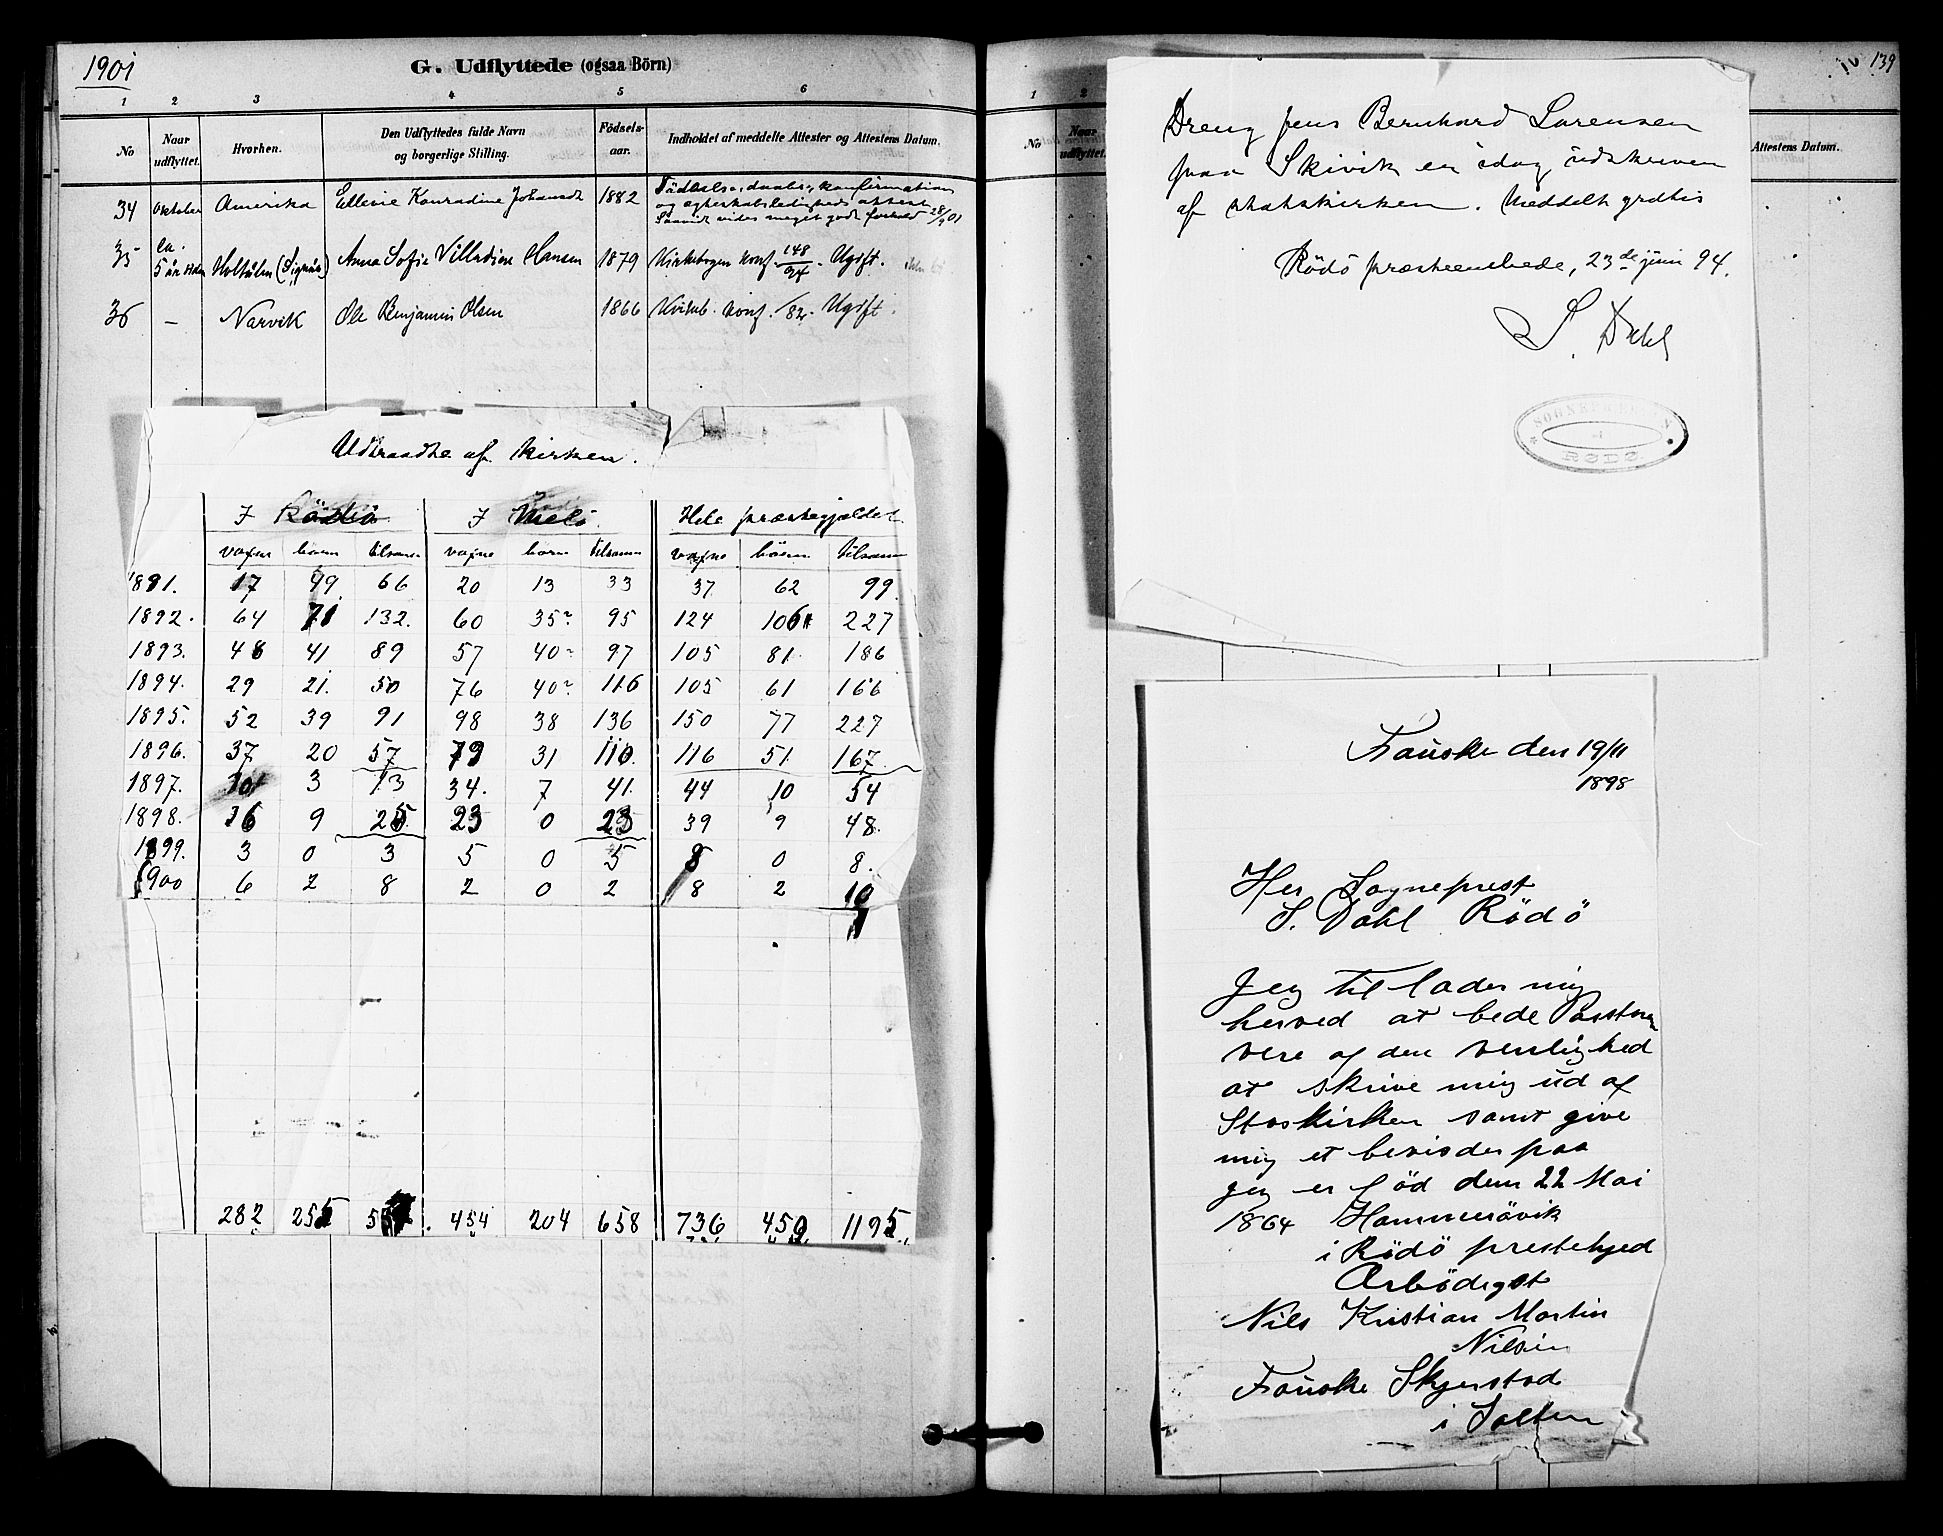 1901
G. Udflyttede (ogsaa Börn)
1 2 3 4 5 6
No Naar udflyttet. Hvorhen. Den Udflyttedes fulde Navn og borgerlige Stilling. Födsels-aar. Indholdet af meddelte Attester og Attestens Datum.
34 Oktober Amerika Ellevie Konradine Johansdt 1882 Födsels-, daabs-, konfirmations
og ægteskabsledigheds attest
vides meget godt forhold 28/9 01
35 ca. 5 år siden Holtålen (Signås) Anna Sofie Villadine Hansen 1879 Kirkebogen konf. 148/94. Ugift.
36 – Narvik Ole Benjamin Olsen 1866 Kirkeb. konf. /82. Ugift.
Udtraadte af kirken.
I Rödö I Melö Hele præstegjældet
voxne börn tilsamm voxne börn tilsamm voxne börn tilsamm
1891. 17 49 66 20 13 33 37 62 99
1892. 64 71 132. 60 35 95 124 106 227
1893. 48 41 89 57 40 97 105 81 186
1894. 29 21. 50 76 40 116 105 61 166
1895. 52 39 91 98 38 136 150 77 227
1896. 37 20 57 79 31 110. 116 51 167
1897. 10 3 13 34. 7 41. 44 10 54
1898. 16 9 25 23 0 23 39 9 48
1899. 3 0 3 5 0 5 8 0 8.
1900 6 2 8 2 0 2 8 2 10
282 255 454 204 658 736 459 1195
139
1 2
No Naar udflyttet. Attestens Datum.
Dreng Jens Bernhard Lorensen
paa Skivik er idag udskreven
af statskirken. Meddelt gratis
Rödö præsteembede, 23de juni 94.
S. Dahl
SOGNEPRESTEN
I
RØDØ
Fauske den 19/11
1898
Her Sogneprest
S. Dahl Rödö
Jeg til lader mig
herved at bede Pastoren
vere af den venlighed
at skrive mig ud af
Stoskirken samt give
mig et bevis der paa
jeg er föd den 22 Mai
1864 Hammerövik
i Rödö prestehjed
Arbödigst
Nils Kristian Martin
Nilsen
Fauske Skjerstad
i Salten